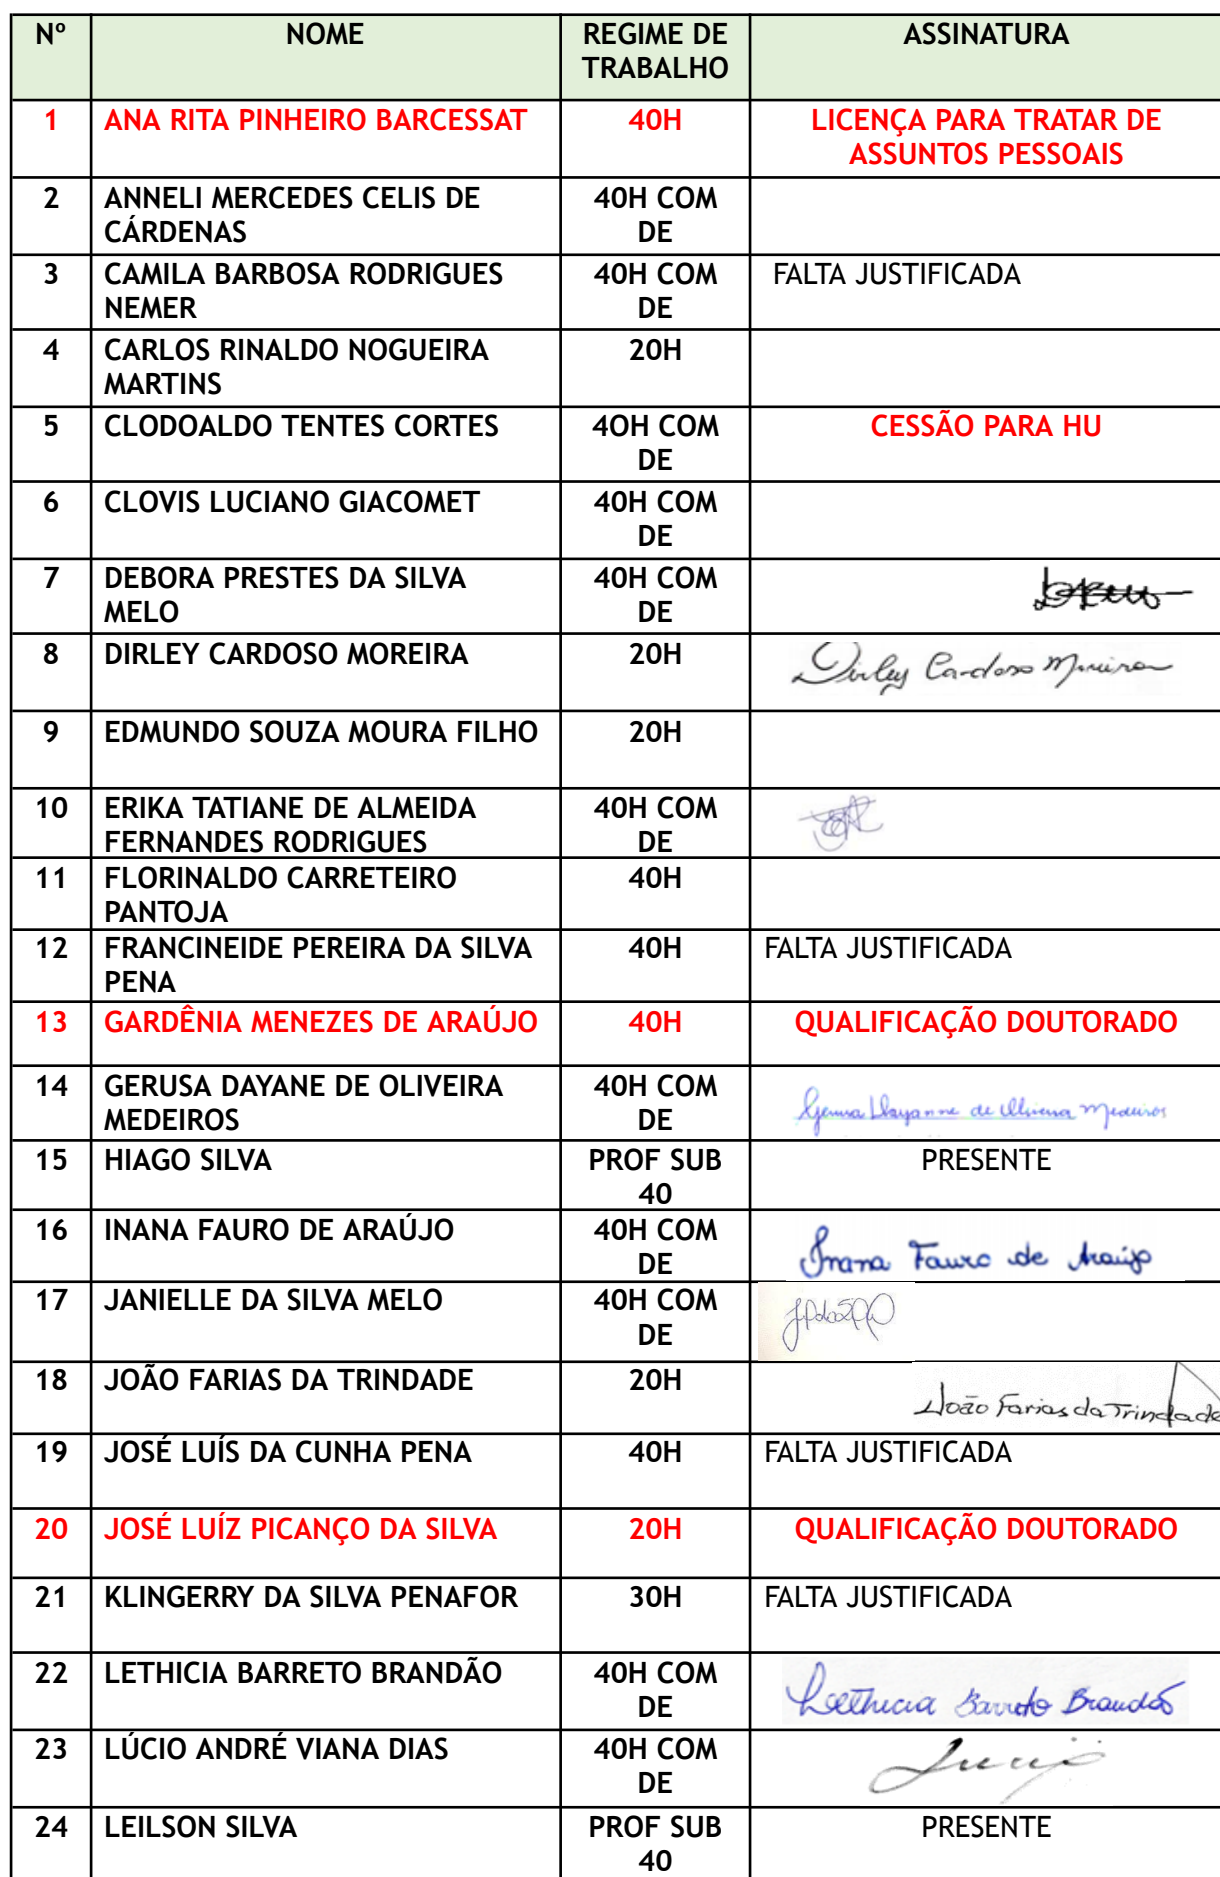 Nº NOME REGIME DE ASSINATURA
TRABALHO
1 ANA RITA PINHEIRO BARCESSAT 40H LICENÇA PARA TRATAR DE
ASSUNTOS PESSOAIS
2 ANNELI MERCEDES CELIS DE 40H COM
CÁRDENAS DE
3 CAMILA BARBOSA RODRIGUES 40H COM FALTA JUSTIFICADA
NEMER DE
4 CARLOS RINALDO NOGUEIRA 20H
MARTINS
5 CLODOALDO TENTES CORTES 4OH COM CESSÃO PARA HU
DE
6 CLOVIS LUCIANO GIACOMET 40H COM
DE
7 DEBORA PRESTES DA SILVA 40H COM
MELO DE
8 DIRLEY CARDOSO MOREIRA 20H Dirley Cardoso Moreira
9 EDMUNDO SOUZA MOURA FILHO 20H
10 ERIKA TATIANE DE ALMEIDA 40H COM
FERNANDES RODRIGUES DE
11 FLORINALDO CARRETEIRO 40H
PANTOJA
12 FRANCINEIDE PEREIRA DA SILVA 40H FALTA JUSTIFICADA
PENA
13 GARDÊNIA MENEZES DE ARAÚJO 40H QUALIFICAÇÃO DOUTORADO
14 GERUSA DAYANE DE OLIVEIRA 40H COM Gerusa Dayanne de Oliveira Medeiros
MEDEIROS DE
15 HIAGO SILVA PROF SUB PRESENTE
40
16 INANA FAURO DE ARAÚJO 40H COM Inana Fauro de Araújo
DE
17 JANIELLE DA SILVA MELO 40H COM
DE
18 JOÃO FARIAS DA TRINDADE 20H João Farias da Trindade
19 JOSÉ LUÍS DA CUNHA PENA 40H FALTA JUSTIFICADA
20 JOSÉ LUÍZ PICANÇO DA SILVA 20H QUALIFICAÇÃO DOUTORADO
21 KLINGERRY DA SILVA PENAFOR 30H FALTA JUSTIFICADA
22 LETHICIA BARRETO BRANDÃO 40H COM Lethicia Barreto Brandão
DE
23 LÚCIO ANDRÉ VIANA DIAS 40H COM
DE
24 LEILSON SILVA PROF SUB PRESENTE
40